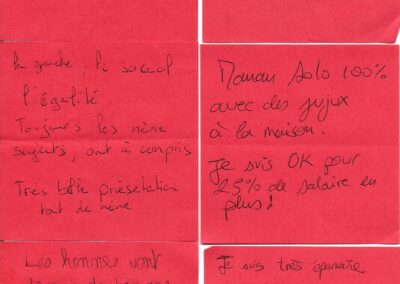 La gauche, le social
l'égalité
Toujours les même
sujets, ont a compris
Tres belle présentation
tout de même
Maman solo 100%
avec des jujux
à la maison.
Je suis OK pour
25% de salaire en
plus!
Les hommes vont
Je suis très épanouie